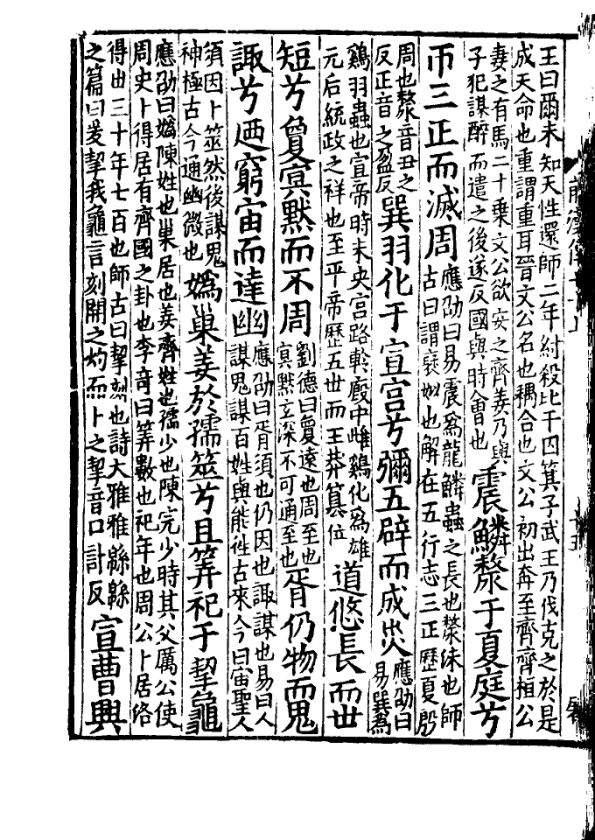 王曰爾未知天性還師二年紂殺比干四箕子武王乃伐克之於是
成天命也重謂重耳晉文公名也耦合也文公初出奔至齊齊桓公
妻之有馬二十乗文公欲安之齊姜乃與
子犯謀醉而遣之後遂反國與時會也
震鱗漦于夏庭兮
帀三正而滅周
應劭曰易震爲龍鱗蟲之長也漦沬也師
古曰謂襃姒也解在五行志三正歷夏殷
周也漦音丑之
反正音之盈反
巽羽化于宣宫兮彌五辟而成災
應劭曰
易巽爲
鷄羽蟲也宣帝時未央宫路軨廄中雌鷄化爲雄
元后統政之祥也至平帝歷五世而王莽簒位
道悠長而世
短兮敻冥默而不周
劉德曰敻遠也周至也
冥默玄深不可通至也
胥仍物而鬼
諏兮迺窮宙而達幽
應劭曰胥須也仍因也諏謀也易曰人
謀鬼謀百姓與能徃古來今曰宙聖人
須因卜筮然後謀鬼
神極古今通幽微也
嬀巢姜於孺筮兮旦筭祀于挈龜
應劭曰嬀陳姓也巢居也姜齊姓也孺少也陳完少時其父厲公使
周史卜得居有齊國之卦也李竒曰筭數也祀年也周公卜居洛
得世三十年七百也師古曰挈刻也詩大雅緜緜
之篇曰爰挈我龜言刻開之灼而卜之挈音口計反
宣曹興